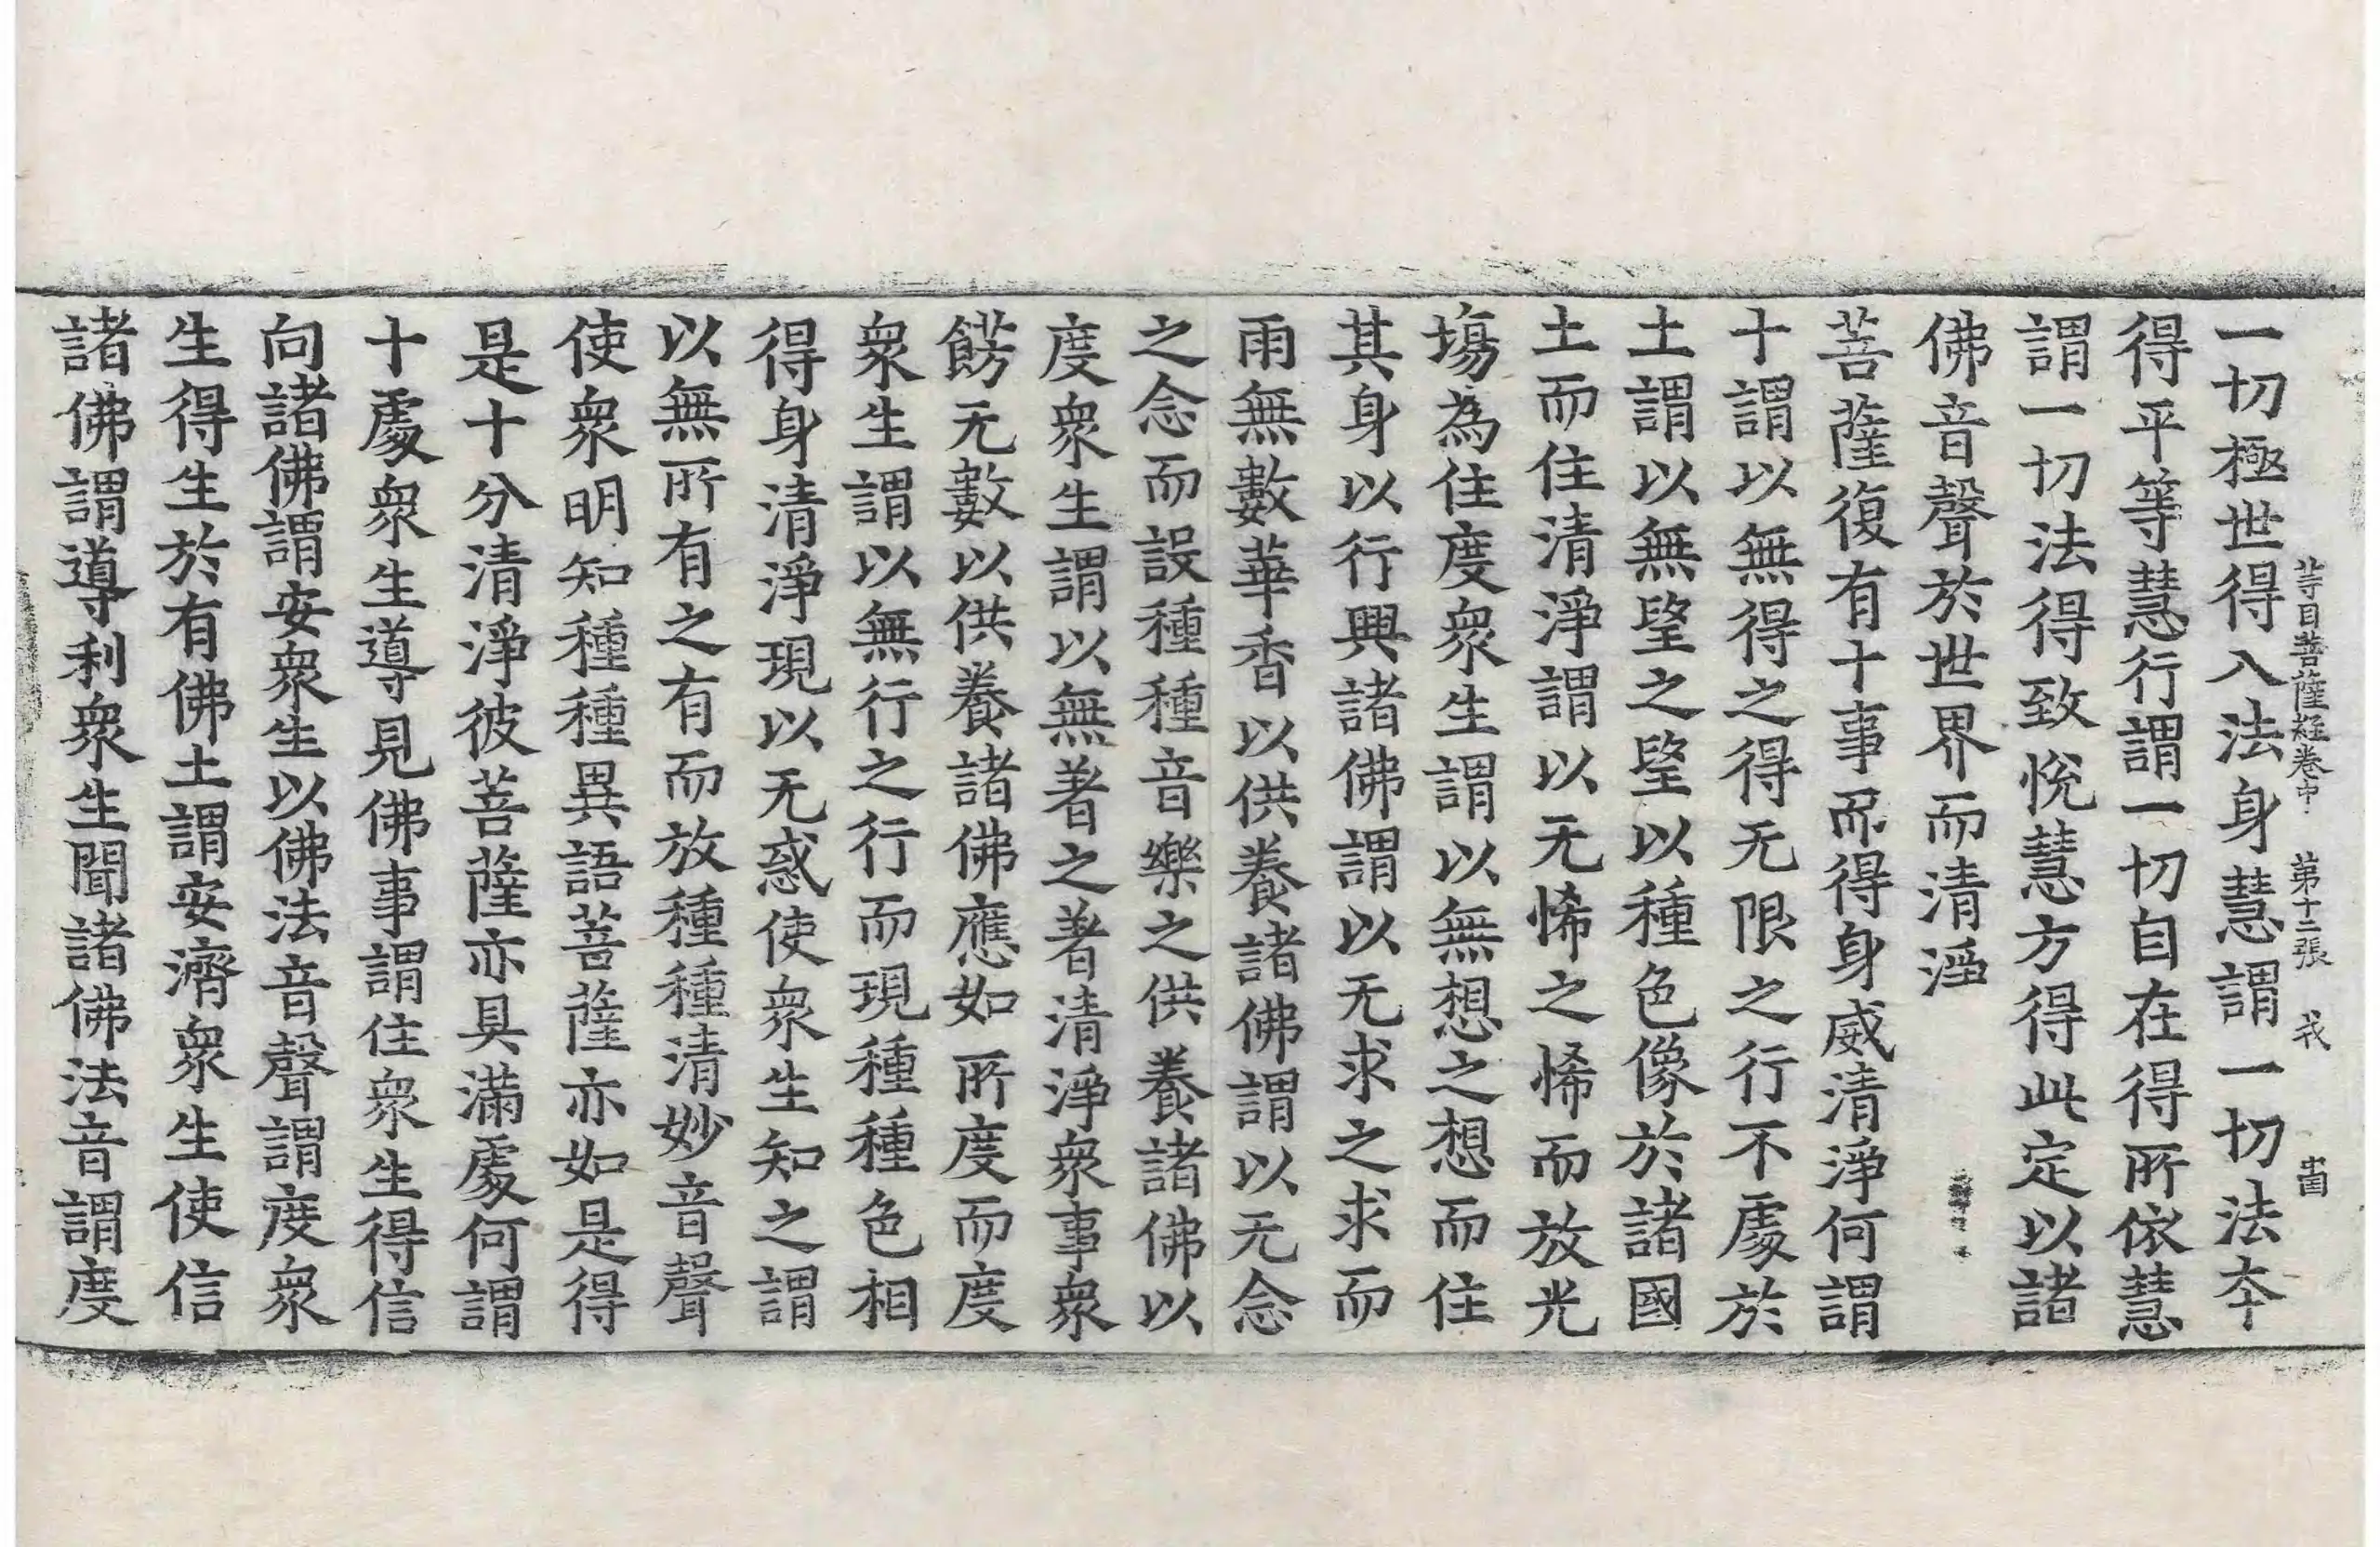 等目菩薩経卷中 第十二張 戎
一切極世得入法身慧謂一切法夲
得平等慧行謂一切自在得所依慧
謂一切法得致悅慧方得此定以諸
佛音聲於世界而清淫
菩薩復有十事而得身威清淨何謂
十謂以無得之得无限之行不處於
土謂以無望之望以種色像於諸國
土而住清淨謂以无悕之悕而放光
塲為住度衆生謂以無想之想而住
其身以行興諸佛謂以无求之求而
雨無數華香以供養諸佛謂以无念
之念而設種種音樂之供養諸佛以
度衆生謂以無著之著清淨衆事衆
餝无數以供養諸佛應如所度而度
衆生謂以無行之行而現種種色相
得身清淨現以无惑使衆生知之謂
以無所有之有而放種種清妙音聲
使衆明知種種異語菩薩亦如是得
是十分清淨彼菩薩亦具滿處何謂
十處衆生導見佛事謂住衆生得信
向諸佛謂安衆生以佛法音聲謂度衆
生得生於有佛土謂安濟衆生使信
諸佛謂導利衆生聞諸佛法音謂度